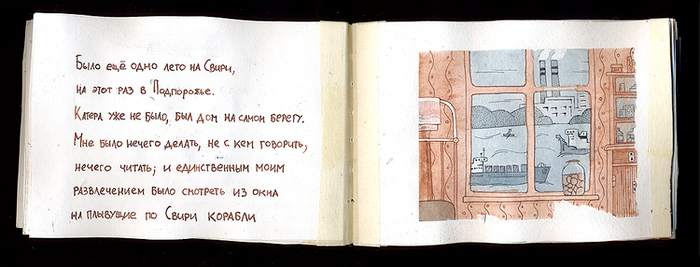 Было ещё одно лето на Свири,
на этот раз в Подпорожье.
Катера уже не было, был дом на самом берегу.
Мне было нечего делать, не с кем говорить,
нечего читать; и единственным моим
развлечением было смотреть из окна
на плывущие по Свири корабли